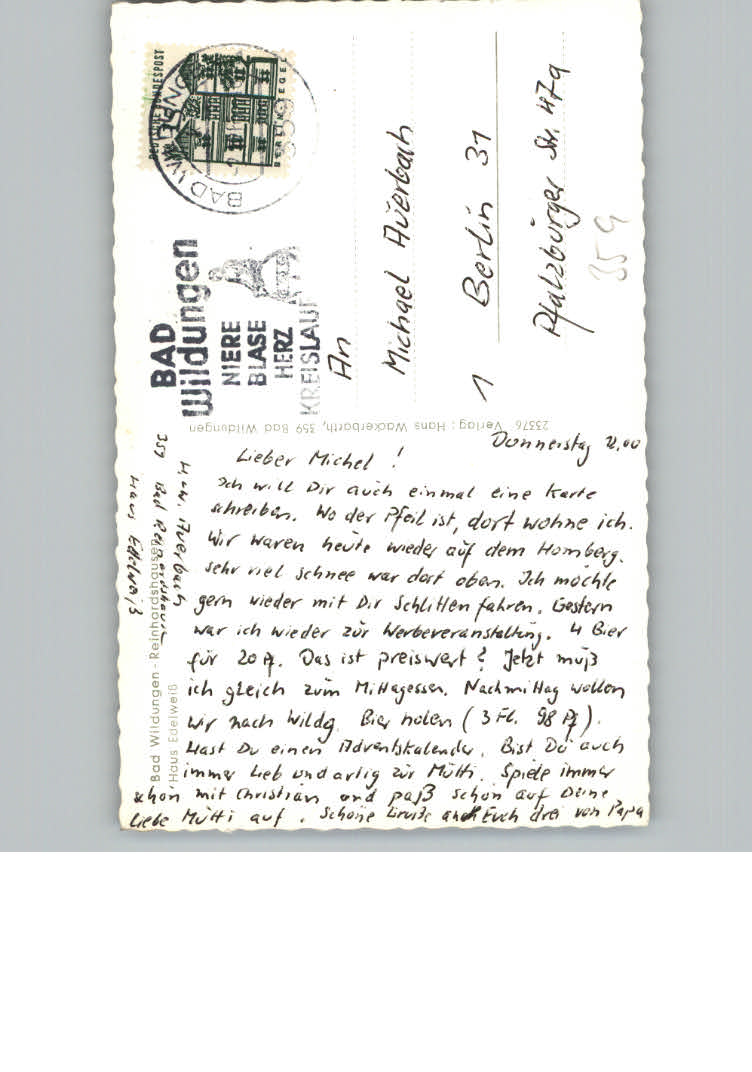 DEUTSCHE BUNDESPOST
BERLIN TEGEL
BAD WILDUNGEN
359
BAD
Wildungen
NIERE
BLASE
HERZ
KREISLAUF
An
Michael Auerbach
1 Berlin 31
Pfalzburger Str. 79
359
23376 Verlag: Hans Wackerbarth, 359 Bad Wildungen
Donnerstag
Lieber Michel!
Ich will Dir auch einmal eine Karte
schreiben. Wo der Pfeil ist, dort wohne ich.
Wir waren heute wieder auf dem Homberg.
Sehr viel Schnee war dort oben. Ich möchte
gern wieder mit Dir Schlitten fahren. Gestern
war ich wieder zur Werbeveranstaltung. 4 Bier
für 20 Pf. Das ist preiswert? Jetzt muß
ich gleich zum Mittagessen. Nachmittag wollen
wir nach Wildg. Bier holen (3 Fl. 98 Pf).
Hast Du einen Adventskalender. Bist Du auch
immer lieb und artig zur Mutti. Spiele immer
schön mit Christian und paß schön auf Deine
liebe Mutti auf. Schöne Grüße an Euch drei von Papa
Auerbach
359 Bad Reinhardshausen
Haus Edelweiß
Bad Wildungen - Reinhardshausen
Haus Edelweiß